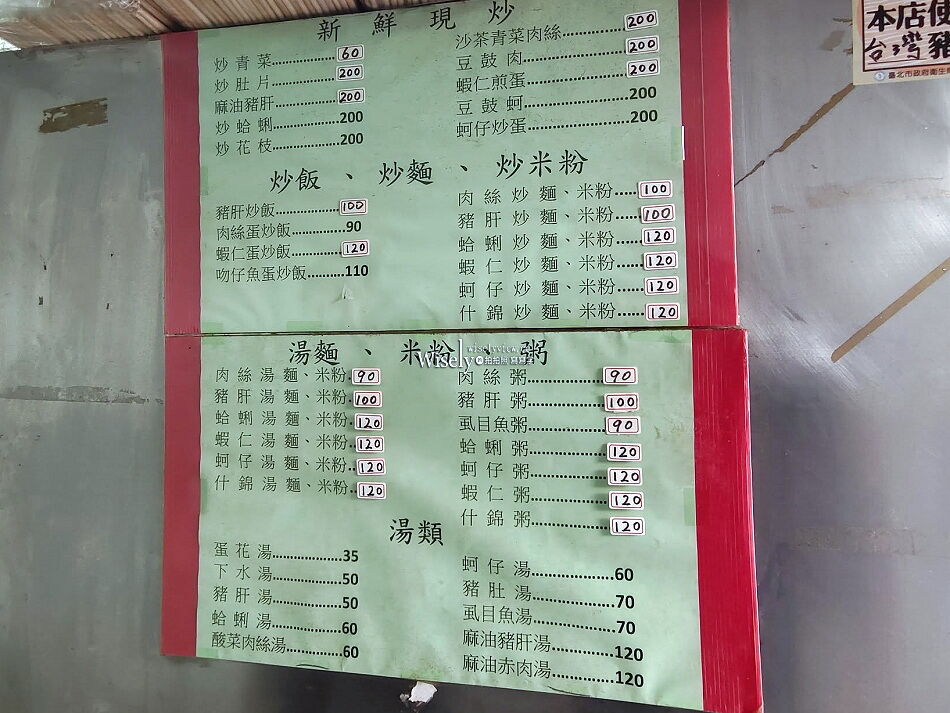 新鮮現炒
炒青菜..............60
炒肚片..............200
麻油豬肝..............200
炒蛤蜊..............200
炒花枝..............200
沙茶青菜肉絲..............200
豆鼓肉..............200
蝦仁煎蛋..............200
豆鼓蚵..............200
蚵仔炒蛋..............200
炒飯、炒麵、炒米粉
豬肝炒飯..............100
肉絲蛋炒飯..............90
蝦仁蛋炒飯..............120
吻仔魚蛋炒飯.........110
肉絲炒麵、米粉.....100
豬肝炒麵、米粉.....100
蛤蜊炒麵、米粉.....120
蝦仁炒麵、米粉.....120
蚵仔炒麵、米粉.....120
什錦炒麵、米粉.....120
湯麵、米粉
粥
肉絲湯麵、米粉.90
豬肝湯麵、米粉.100
蛤蜊湯麵、米粉.120
蝦仁湯麵、米粉.120
蚵仔湯麵、米粉.120
什錦湯麵、米粉.120
肉絲粥..............90
豬肝粥..............100
虱目魚粥..............90
蛤蜊粥..............120
蚵仔粥..............120
蝦仁粥..............120
什錦粥..............120
湯類
蛋花湯..............35
下水湯..............50
豬肝湯..............50
蛤蜊湯..............60
酸菜肉絲湯..............60
蚵仔湯..............60
豬肚湯..............70
虱目魚湯..............70
麻油豬肝湯..............120
麻油赤肉湯..............120
本店使
台灣豬
臺北市政府衛生
Wisely
拍拍照寫寫字